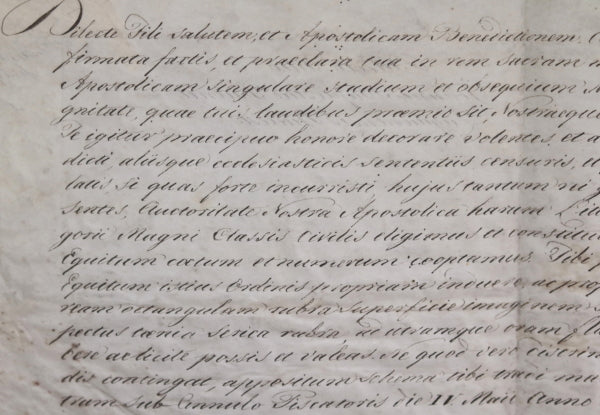 Dilecte Fili salutem, et Apostolicam Benedictionem.
firmata factis, et praeclara tua in rem sacram
Apostolicam singulare studium et obsequium
gnitate, quae tuis laudibus praemio sit, Nostraeque
Te igitur praecipuo honore decorare volentes, et a
dicti aliisque ecclesiasticis sententiis censuris, et
latis, si quas forte incurristi hujus tantum
sentes, Auctoritate Nostra Apostolica harum
gorii Magni Classis Civilis eligimus et constitui
Equitum coetum et numerum cooptamus. Tibi
Equitum istius Ordinis propriam induere, ac prop
ream octangulam rubra superficie imaginem
pectus taenia serica rubra ad utramque oram fla
licite possis et valeas. Ne quod vero discrim
dis contingat, appositum schema tibi tradi
trum sub Annulo Piscatoris die IV Maii Anno